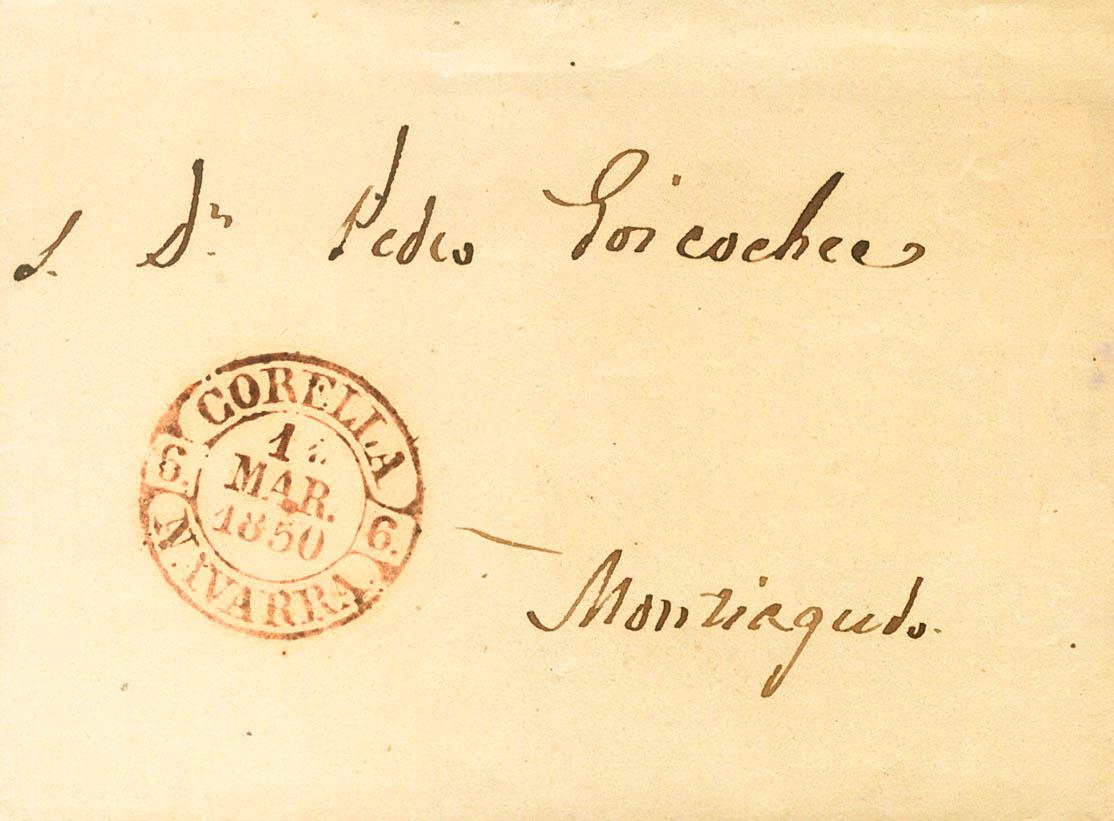 S. Dn. Pedro Goicochea
CORELLA
6. 6.
MAR.
1850
N. NAVARRA.
Monteagudo.